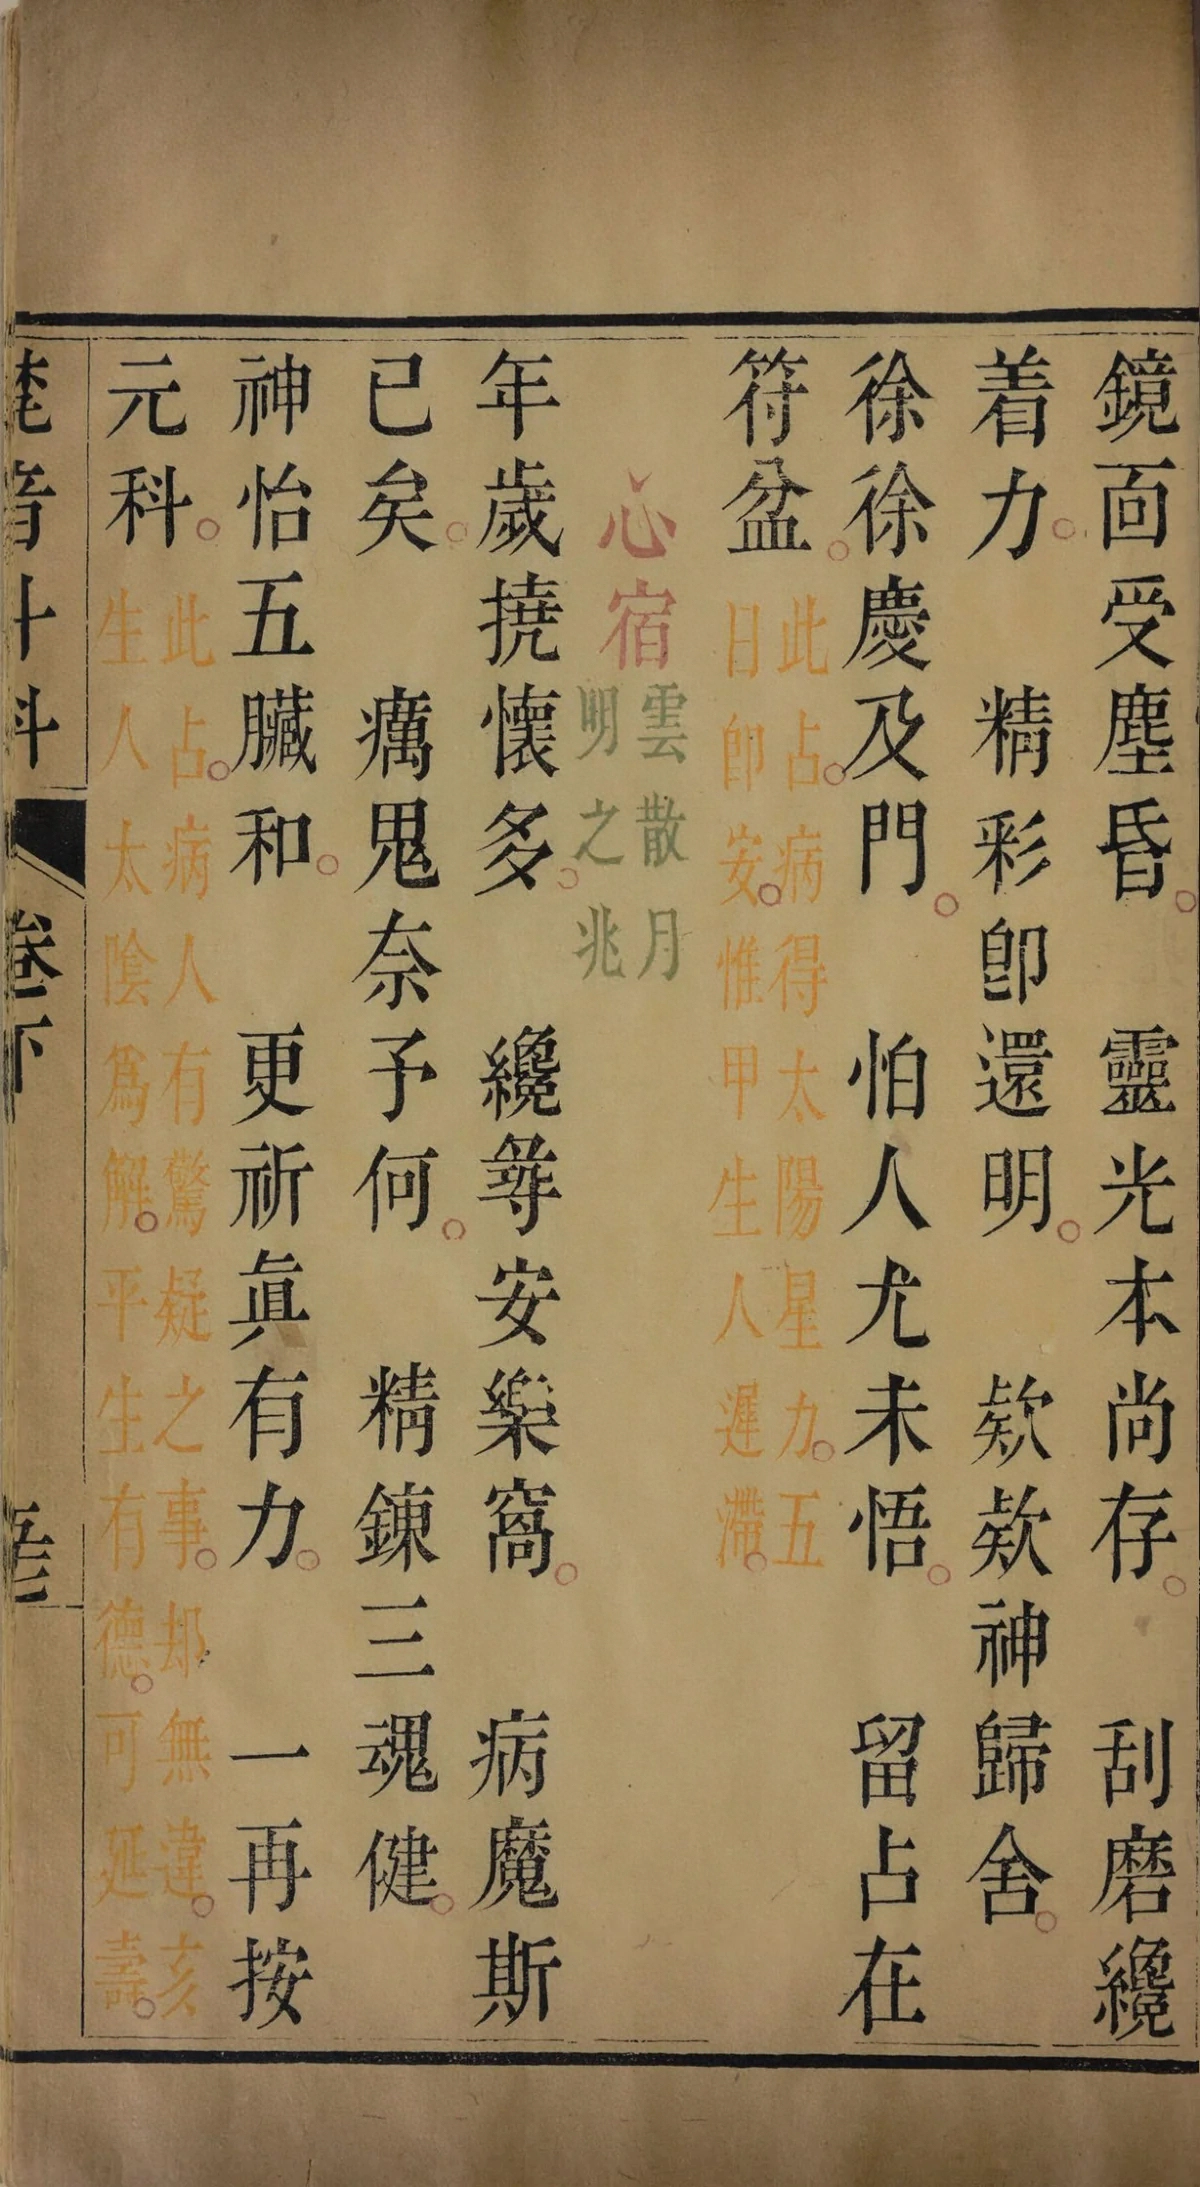 鏡面受塵昏。靈光本尚存。刮磨纔
着力。精彩卽還明。欸欸神歸舍。
徐徐慶及門。怕人尤未悟。留占在
符盆。
此占。病得太陽星力。五
日卽安。惟甲生人遲滯。
心宿
雲散月
明之兆
年歲撓懷多。纔尋安樂窩。病魔斯
已矣。癘鬼奈予何。精鍊三魂健。
神怡五臟和。更祈眞有力。一再按
元科。
此占。病人有驚疑之事。却無違。亥
生人太陰爲解。平生有德。可延壽。
卷下